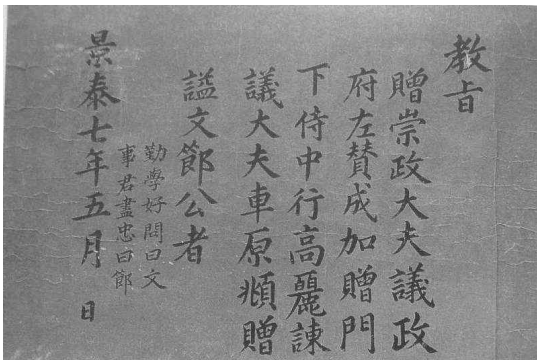 教旨
贈崇政大夫議政
府左賛成加贈門
下侍中行高麗諫
議大夫車原頫贈
諡文節公者
勤學好問曰文
事君盡忠曰節
景泰七年五月 日